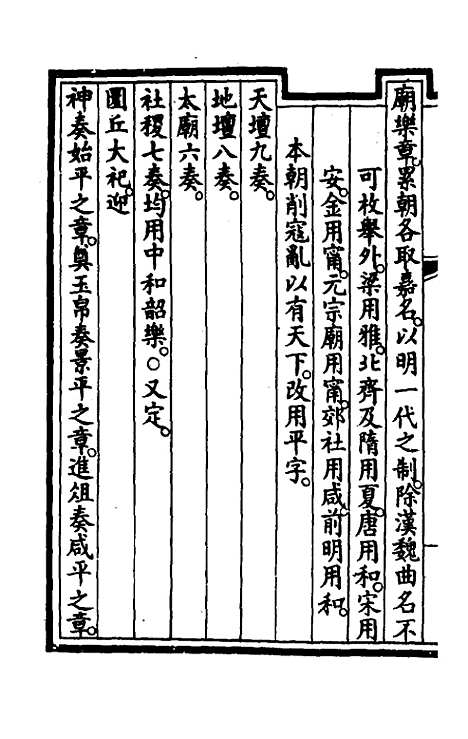 廟樂章。累朝各取嘉名。以明一代之制。除漢魏曲名不
可枚舉外。梁用雅。北齊及隋用夏。唐用和。宋用
安。金用甯。元宗廟用甯。郊社用咸。前明用和。
本朝削寇亂以有天下。改用平字。
天壇九奏。
地壇八奏。
太廟六奏。
社稷七奏。均用中和韶樂。○又定。
圜丘大祀。迎
神奏始平之章。奠玉帛奏景平之章。進俎奏咸平之章。